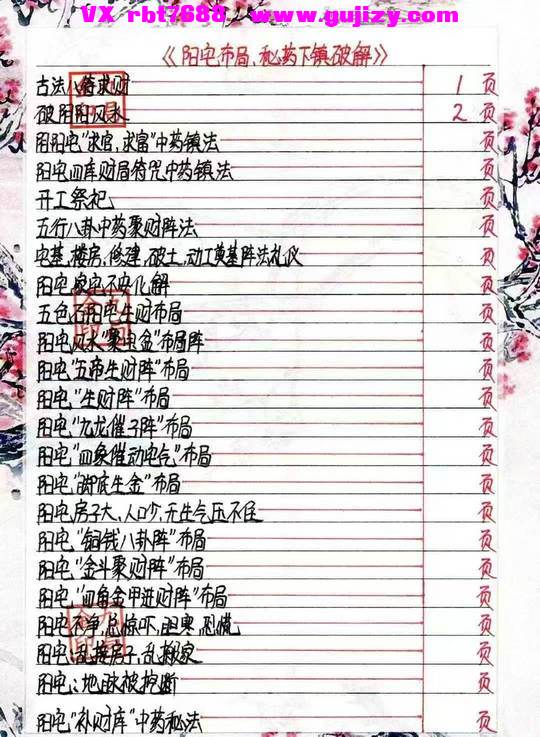 VX rbt7688 www.gujizy.com
《阳宅布局、秘药下镇破解》
古法八符求财 1页
破阴阳风水 2页
阴阳宅"求官,求富"中药镇法 页
阳宅四库财局符咒中药镇法 页
开工祭祀 页
五行八卦中药聚财阵法 页
宅基,楼房,修建,破土,动工奠基阵法礼仪 页
阳宅家宅不安化解 页
五色石阳宅生财布局 页
阳宅风水"聚宝金"布局阵 页
阳宅"五帝生财阵"布局 页
阳宅"生财阵"布局 页
阳宅"九龙催子阵"布局 页
阳宅"四象催动宅气"布局 页
阳宅"脚底生金"布局 页
阳宅房子大、人口少,无生气压不住 页
阳宅"铜钱八卦阵"布局 页
阳宅"金斗聚财阵"布局 页
阳宅"四角金甲进财阵"布局 页
阳宅不净,总惊吓,胆寒,恐慌 页
阳宅:乱接房子,乱搬家 页
阳宅:地脉被挖断 页
阳宅"补财库"中药秘法 页